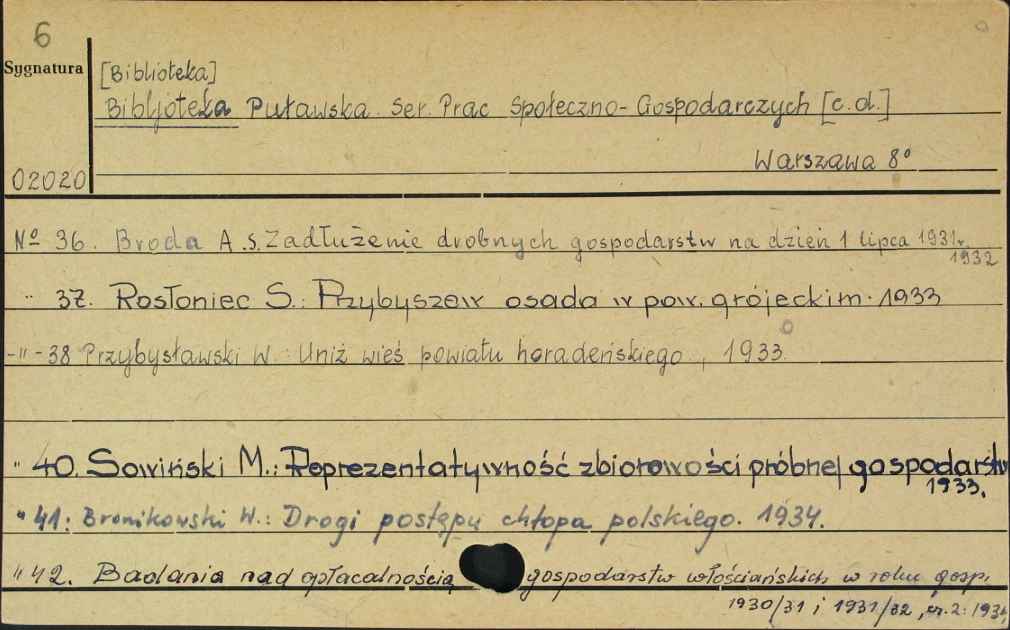 6
Sygnatura
[Biblioteka]
Bibljoteka Puławska. Ser. Prac Społeczno-Gospodarczych [c.d.]
Warszawa 8°
02020
№ 36. Broda A.s. Zadłużenie drobnych gospodarstw na dzień 1 lipca 1931r.
1932
" 37. Rosłoniec S.: Przybyszew osada w pow. grójeckim. 1933
-"- 38 Przybysławski W.: Uniż wieś powiatu horadeńskiego, 1933.
" 40. Sowiński M.: Reprezentatywność zbiorowości próbnej gospodarstw
1933.
" 41: Bronikowski W.: Drogi postępu chłopa polskiego. 1934.
" 42. Badania nad opłacalnością gospodarstw włościańskich w roku gosp.
1930/31 i 1931/32, cz. 2: 1934